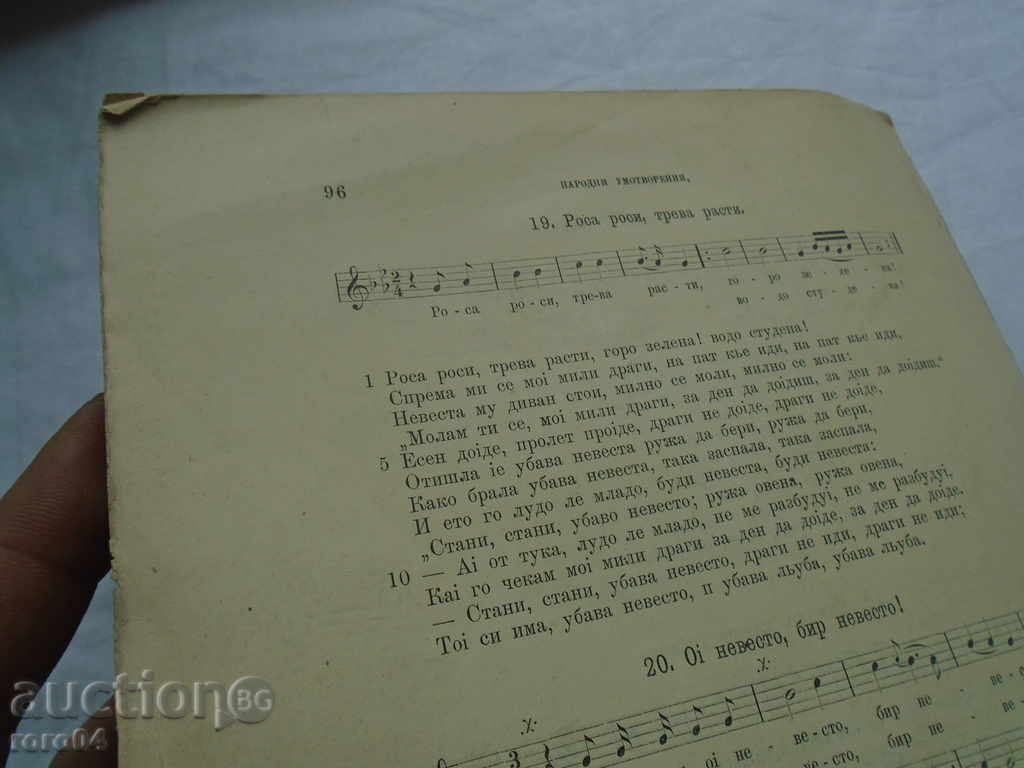 96
НАРОДНИ УМОТВОРЕНИЯ,
19. Роса роси, трева расти.
2
4
Ро - са ро - си, тре-ва рас - ти, го - ро зе - ле - на!
во - до сту - де - на!
1 Роса роси, трева расти, горо зелена! водо студена!
Спрема ми се моі мили драги, на пат кье иди, на пат кье иди,
Невеста му диван стои, милно се моли, милно се моли:
„Молам ти се, моі мили драги, за ден да доідиш, за ден да доідиш.“
5 Есен доіде, пролет проіде, драги не доіде, драги не доіде,
Отишла іе убава невеста ружа да бери, ружа да бери,
Како брала убава невеста, така заспала, така заспала,
И ето го лудо ле младо, буди невеста, буди невеста:
„Стани, стани, убаво невесто; ружа овена, ружа овена,
10 — Аі от тука, лудо ле младо, не ме разбудуі, не ме разбудуі,
Каі го чекам моі мили драги за ден да доіде, за ден да доіде.
— Стани, стани, убава невесто, драги не иди, драги не иди;
Тоі си има, убава невесто, п убава льуба, убава льуба.
20. Оі невесто, бир невесто!
3
Оі не - ве-сто, бир не - ве-с
оі не - ве-сто, бир не - ве
auctionBG
roro04